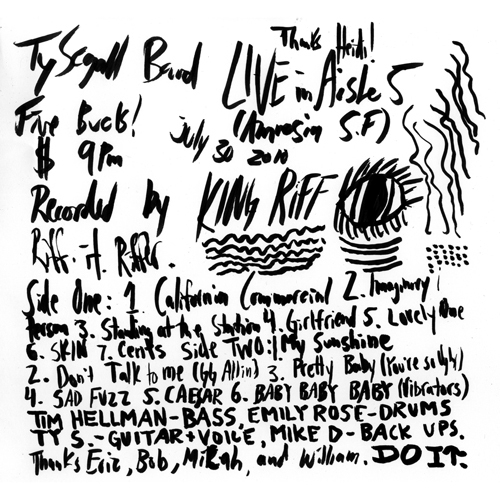 Thanks Heidi!
Ty Segall Band LIVE in Aisle 5
Five Bucks! (Amnesia S.F)
$ 9PM July 30 2010
Recorded by KING RIFF
Riff. it. Riffer.
Side One: 1. California Commercial 2. Imaginary
Person 3. Standing at the Station 4. Girlfriend 5. Lovely One
6. SKIN 7. Cents Side TWO: 1 My Sunshine
2. Don't Talk to me (GG Allin) 3. Pretty Baby (You're so Ugly)
4. SAD FUZZ 5. CAESAR 6. BABY BABY BABY (Vibrators)
TIM HELLMAN-BASS. EMILY ROSE-DRUMS
TY S.-GUITAR+VOICE, MIKE D-BACK UPS.
Thanks Eric, Bob, Mikah, and William. DO IT.